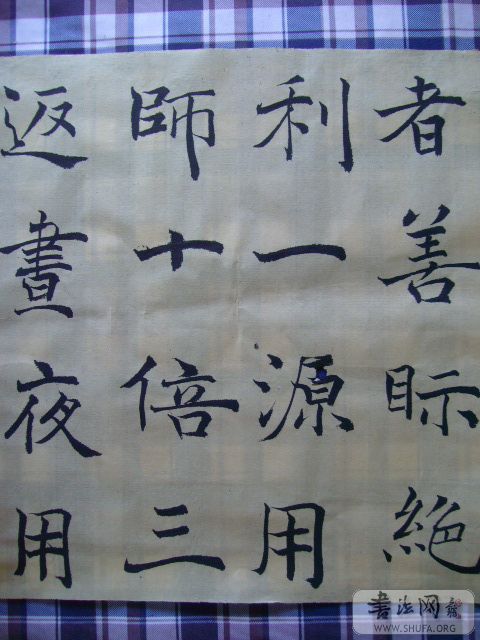 者善眎絶
利一源用
師十倍三
返晝夜用
書法网
WWW.SHUFA.ORG